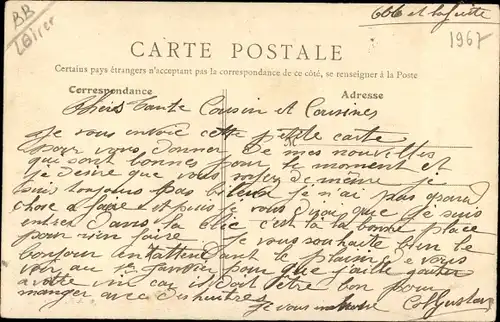 BB
Loiret
606 et la suite
1967
CARTE POSTALE
Certains pays étrangers n'acceptant pas la correspondance de ce côté, se renseigner à la Poste
Correspondance
Adresse
Chers tante Cousin et Cousines
Je vous envoie cette petite carte
M
pour vous donner de mes nouvelles
que sont bonnes pour le moment et
je desire que vous soyez de même je
suis toujours pas je n'ai pas grand
chose a faire et puis je vous que je suis
entrer dans la clic c'est la la bonne place
pour rien faire Je vous souhaite bien le
bonjour en attendant le plaisir de vous
voir au 1er janvier pour que j'aille gouter
a votre vin car il doit être bon pour
manger avec des huitres
je vous Gustave